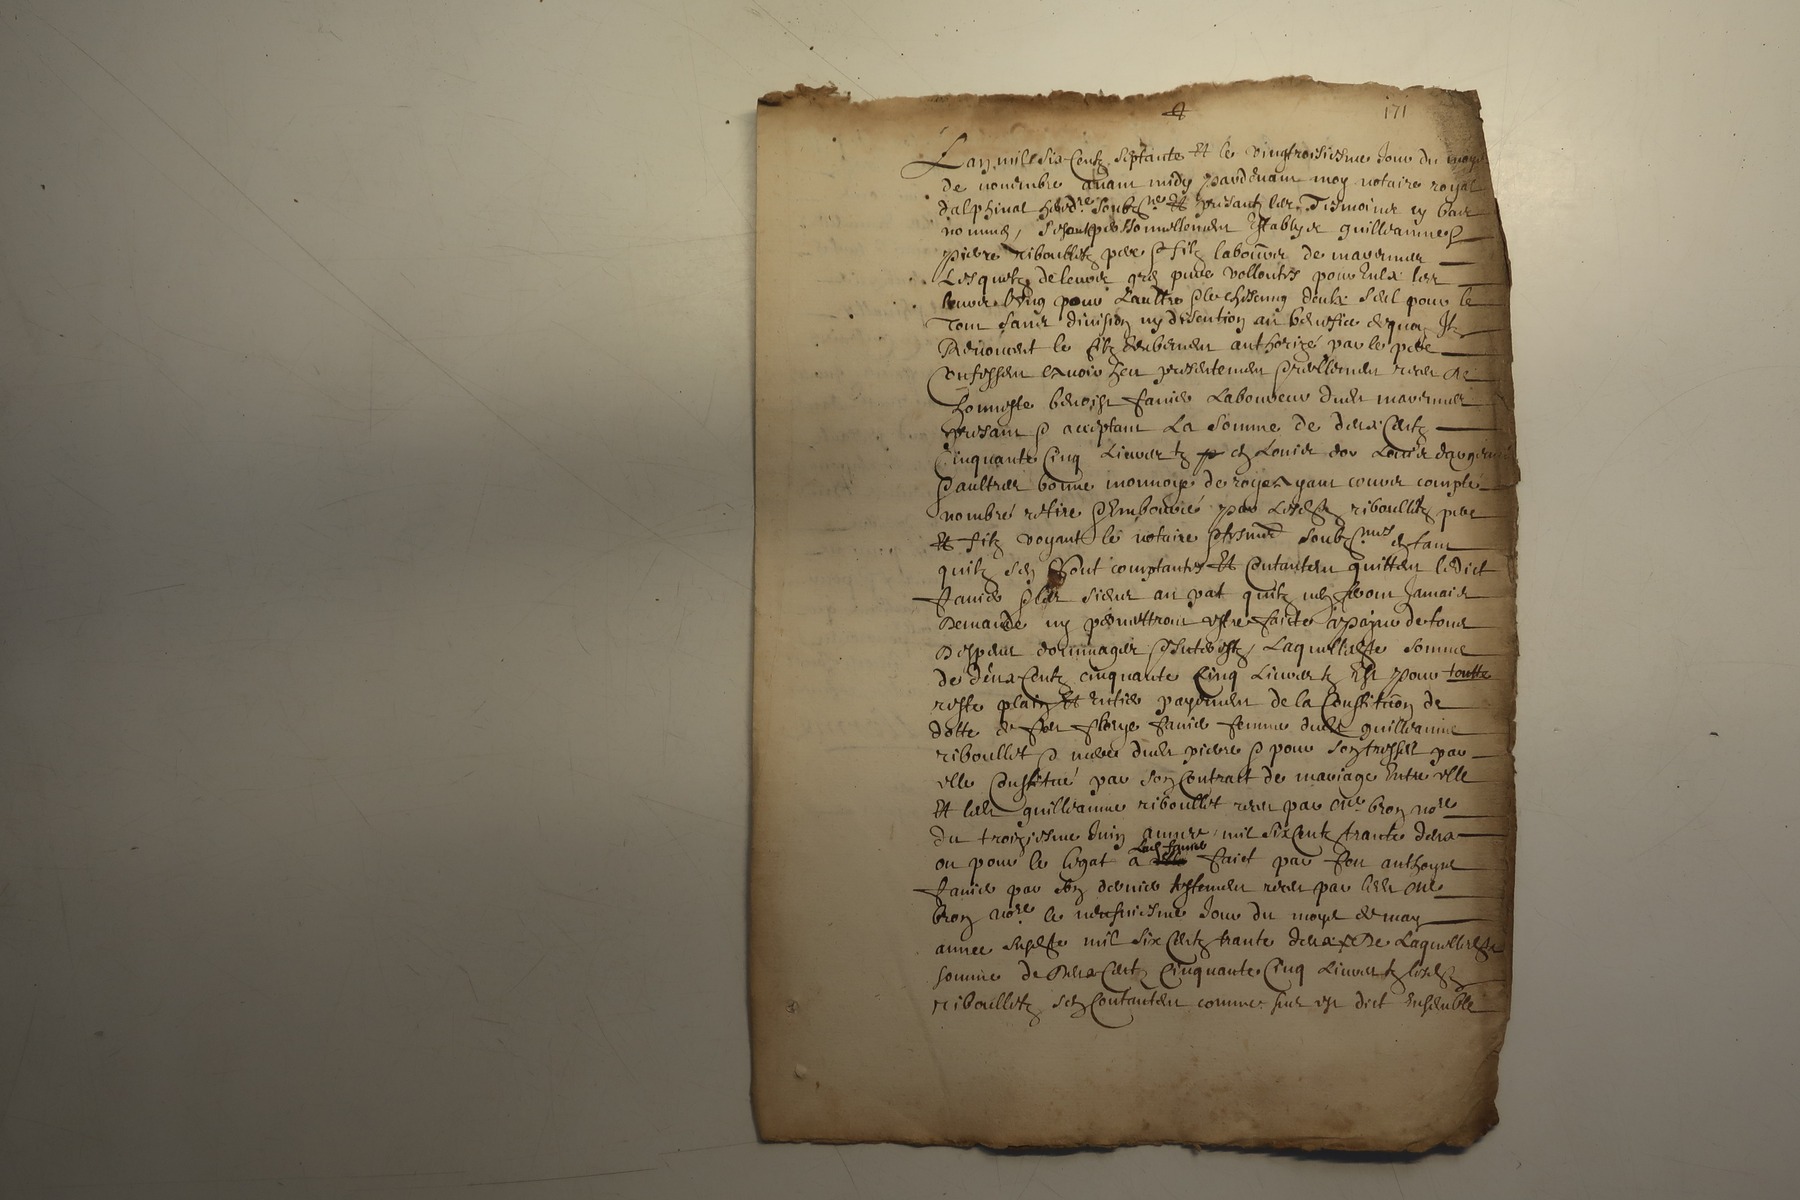 171
Lan mil six Centz septante Et le vingtroisiesme Jour du moys
de novembre avant midy pardevant moy notaire royal
dalphinal hered.re soubz.né Et presantz les Tesmoins en bas
nommés, personnellement Establys guilleaume &
pierre riboulletz pere & filz laboureurs de
Lesquelz de leur gré pure vollonté pour Eulx les
leurs Lung pour Laultre & le chescung deulx seul pour le
Tout sans division ny discution au benefice de quoy Ilz
Renoncent le filz authorizé par le pere
Confessent avoir heu presentement & reellement receu de
honneste benoist favier Laboureur dudit
presant & acceptant La somme de deux Centz
Cinquante Cinq Livres en Louis dor Louis dargent
& aultres bonne monnoye de roy ayant cours compté
nombré retiré & Embourcé par Lesdits riboulletz pere
Et filz voyant le notaire & soubz.nés
quilz sont comptantés Et Contantent quittent ledict
favier & les siens au pat quilz nen feront Jamais
Demande ny permettront estre faicte a payne de tous
Despens dommages & Interestz, Laquelle somme
de deux Centz cinquante Cinq Livres Est pour toutte
reste plain Et Entier payement de la Constitution de
dotte de favier femme dudit guilleaume
riboullet & mere dudit pierre & pour par
elle Constitué par son Contract de mariage Entre elle
Et ledit guilleaume riboullet receu par me bron no.re
du troiziesme Juin annee mil six Centz trante deux
ou pour le legat a faict par feu anthoyne
favier par son dernier testement receu par ledit me
bron no.re le Jour du moys de may
annee mil six Centz trante deux De Laquelle
somme de Deux Centz Cinquante Cinq Livres lesdits
riboulletz sen Contantent comme sus est dict Ensemble